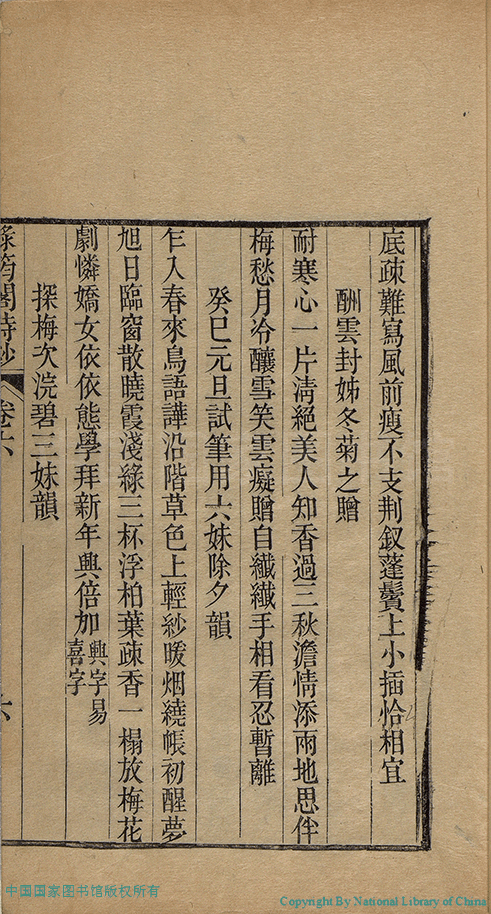 底疎難寫風前瘦不支荆釵蓬鬢上小插恰相宜
酬雲封姊冬菊之贈
耐寒心一片清絕美人知香過三秋澹情添兩地思伴
梅愁月冷釀雪笑雲癡贈自纖纖手相看忍暫離
癸巳元旦試筆用六妹除夕韻
乍入春來鳥語譁沿階草色上輕紗暖烟繞帳初醒夢
旭日臨窗散曉霞淺綠三杯浮柏葉疎香一榻放梅花
劇憐嬌女依依態學拜新年興倍加興字易喜字
探梅次浣碧三妹韻
綠筠閣詩鈔 卷六 六
中国国家图书馆版权所有
Copyright By National Library of China